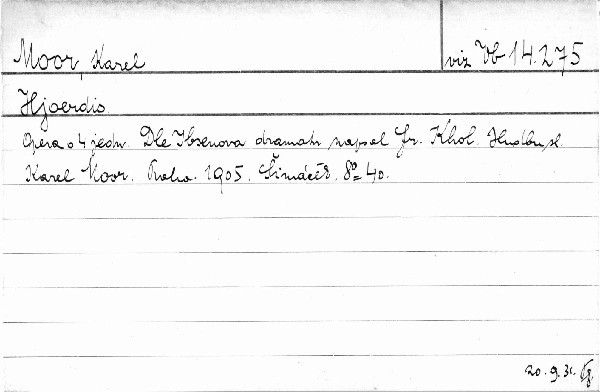 Moor, Karel
viz Vb 14.275
Hjoerdis
Opera o 4 jedn. Dle Ibsenova dramatu napsal Fr. Khol. Hudbu sl.
Karel Moor. Praha. 1905. Šimáček. 8° 40.
20. 9. 31.